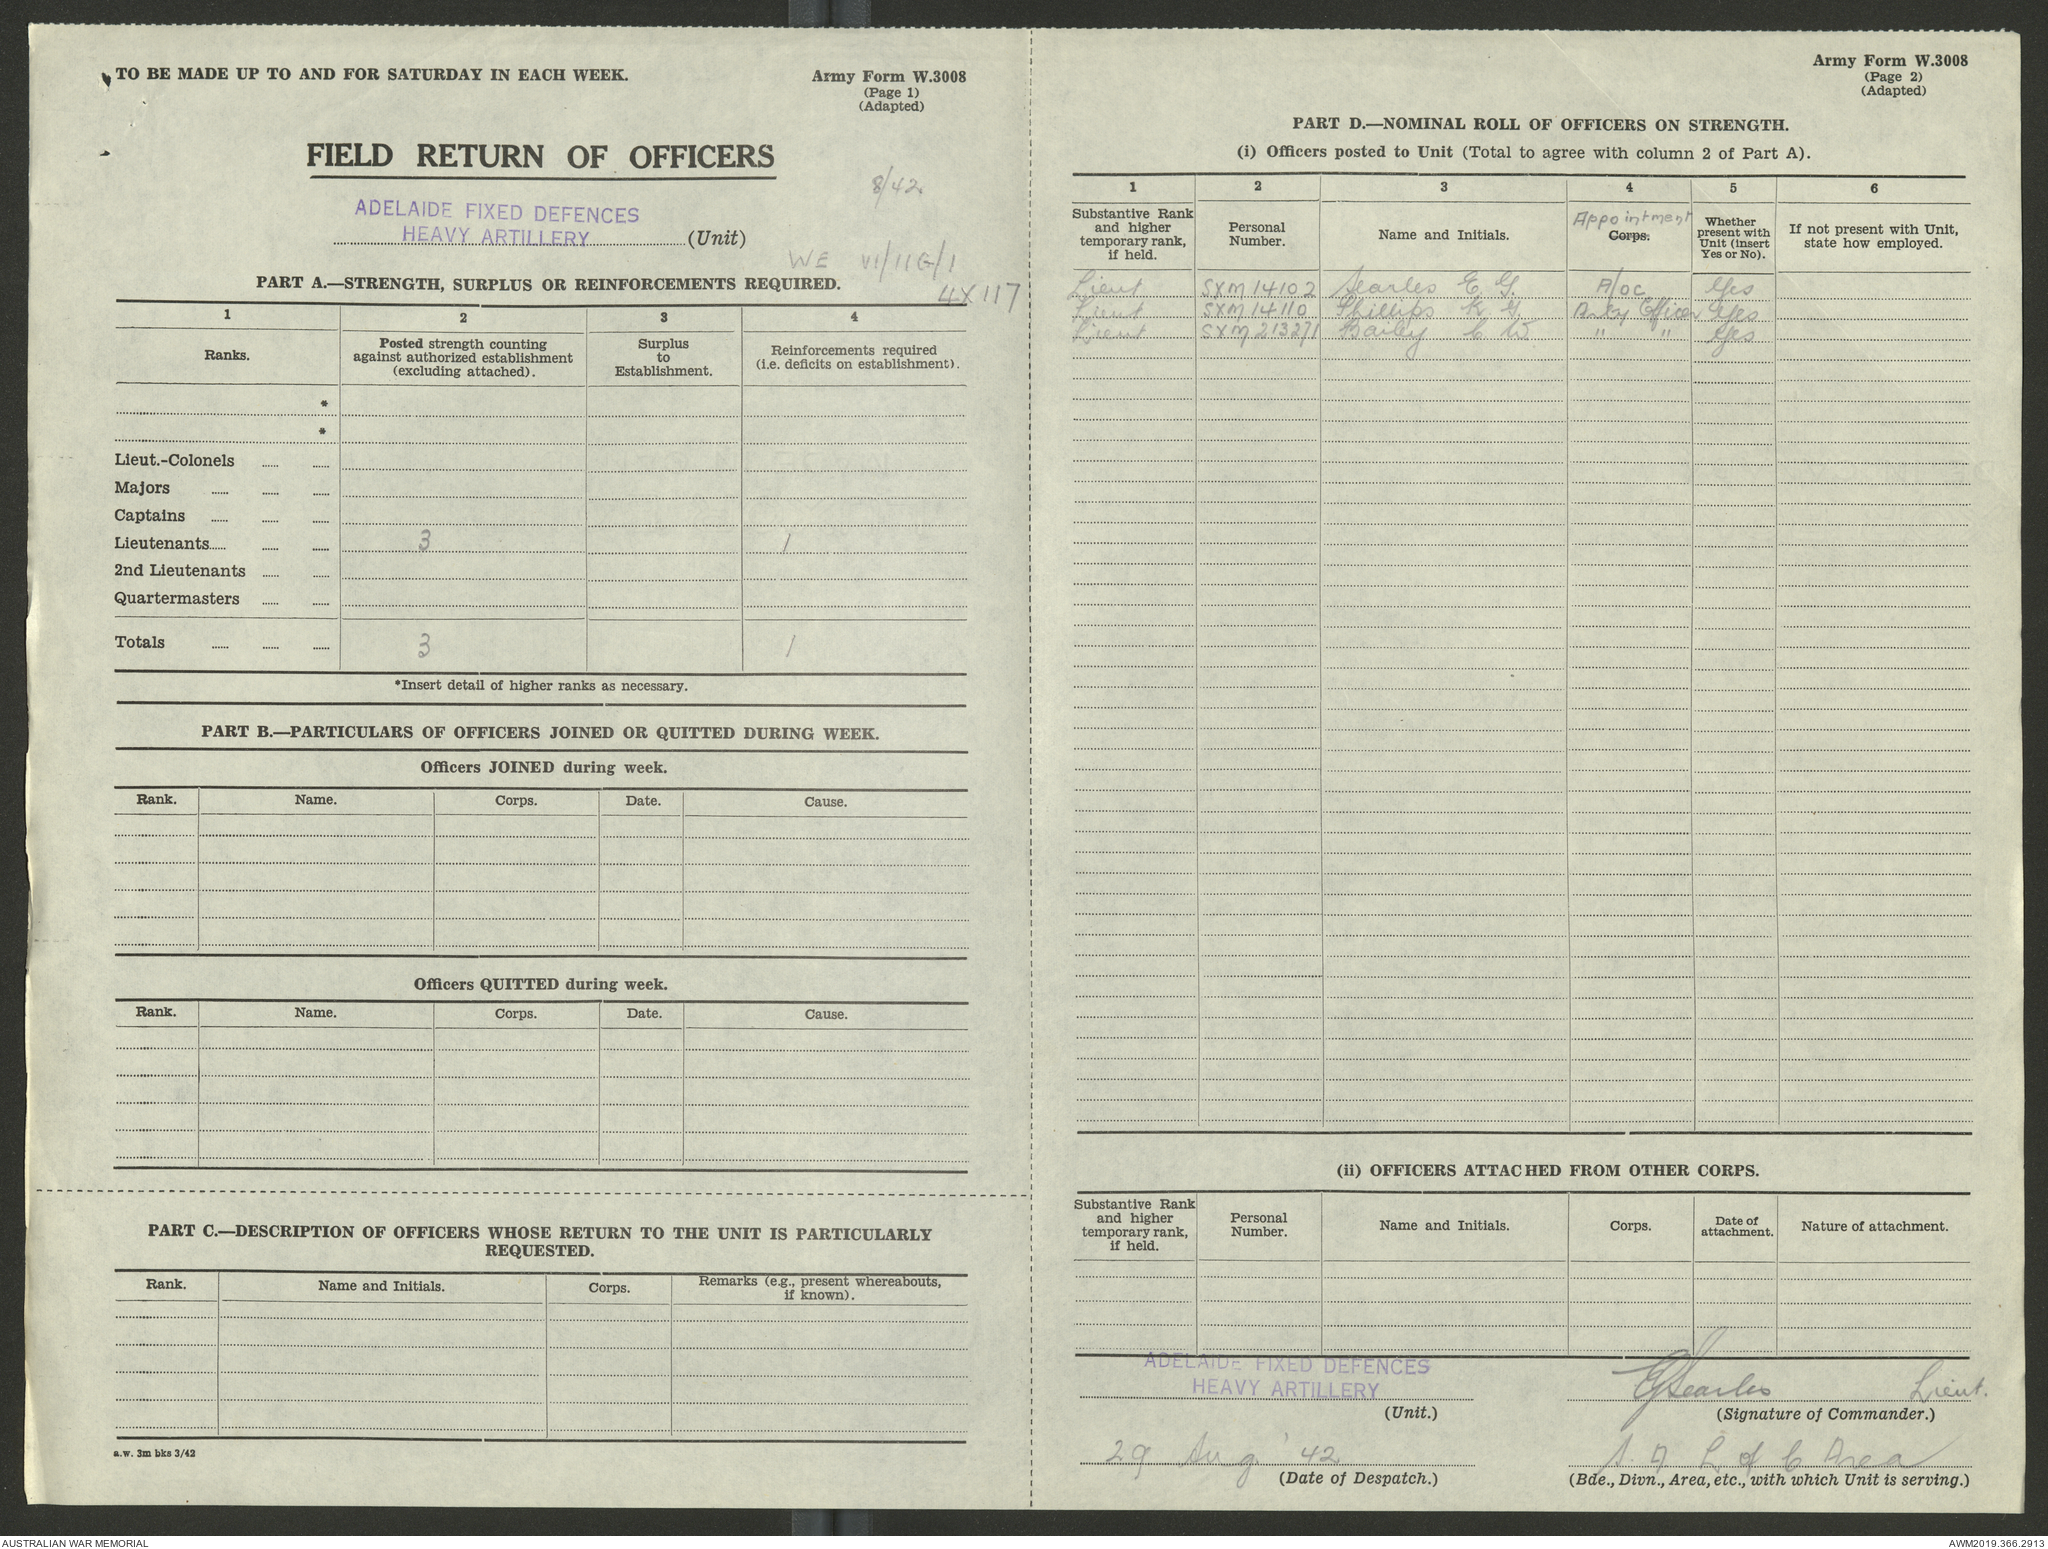 TO BE MADE UP TO AND FOR SATURDAY IN EACH WEEK.
Army Form W.3008
(Page 1)
(Adapted)
FIELD RETURN OF OFFICERS
8/42.
ADELAIDE FIXED DEFENCES
HEAVY ARTILLERY (Unit)
WE VI/11G/1
4X117
PART A.—STRENGTH, SURPLUS OR REINFORCEMENTS REQUIRED.
1 2 3 4
Ranks.
Posted strength counting
against authorized establishment
(excluding attached).
Surplus
to
Establishment.
Reinforcements required
(i.e. deficits on establishment).
*
*
Lieut.-Colonels
Majors
Captains
Lieutenants 3 1
2nd Lieutenants
Quartermasters
Totals 3 1
*Insert detail of higher ranks as necessary.
PART B.—PARTICULARS OF OFFICERS JOINED OR QUITTED DURING WEEK.
Officers JOINED during week.
Rank. Name. Corps. Date. Cause.
Officers QUITTED during week.
Rank. Name. Corps. Date. Cause.
PART C.—DESCRIPTION OF OFFICERS WHOSE RETURN TO THE UNIT IS PARTICULARLY
REQUESTED.
Rank. Name and Initials. Corps.
Remarks (e.g., present whereabouts,
if known).
a.w. 3m bks 3/42
Army Form W.3008
(Page 2)
(Adapted)
PART D.—NOMINAL ROLL OF OFFICERS ON STRENGTH.
(i) Officers posted to Unit (Total to agree with column 2 of Part A).
1 2 3 4 5 6
Substantive Rank
and higher
temporary rank,
if held.
Personal
Number.
Name and Initials.
Appointment
Corps.
Whether
present with
Unit (insert
Yes or No).
If not present with Unit,
state how employed.
Lieut SXM14102 Searles E. G. A/OC Yes
Lieut SXM14110 Phillips K G. Arty Officer Yes
Lieut SXM213271 Bailey C W. " " Yes
(ii) OFFICERS ATTACHED FROM OTHER CORPS.
Substantive Rank
and higher
temporary rank,
if held.
Personal
Number.
Name and Initials.
Corps.
Date of
attachment.
Nature of attachment.
ADELAIDE FIXED DEFENCES
HEAVY ARTILLERY
(Unit.)
EGSearles Lieut.
(Signature of Commander.)
29 Aug '42
(Date of Despatch.)
S. A L of C Area
(Bde., Divn., Area, etc., with which Unit is serving.)
AUSTRALIAN WAR MEMORIAL
AWM2019.366.2913